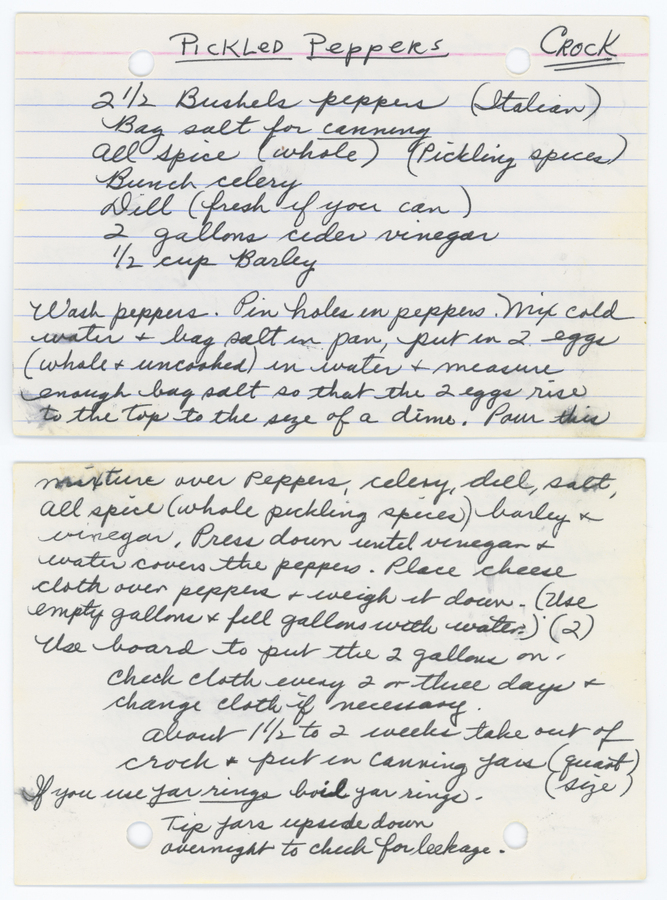 Pickled Peppers Crock
2 1/2 Bushels peppers (Italian)
Bag salt for canning
All spice (whole) (Pickling spices)
Bunch celery
Dill (fresh if you can)
2 gallons cider vinegar
1/2 cup Barley
Wash peppers. Pin holes in peppers. Mix cold
water + bag salt in pan, put in 2 eggs
(whole + uncooked) in water + measure
enough bag salt so that the 2 eggs rise
to the top to the size of a dime. Pour this
mixture over Peppers, celery, dill, salt,
All spice (whole pickling spices) barley +
vinegar. Press down until vinegar +
water covers the peppers. Place cheese
cloth over peppers + weigh it down. (Use
empty gallons + fill gallons with water.) (2)
Use board to put the 2 gallons on.
Check cloth every 2 or three days +
change cloth if necessary.
About 1 1/2 to 2 weeks take out of
crock + put in canning jars (quart
size)
If you use jar rings boil jar rings.
Tip jars upside down
overnight to check for leekage.